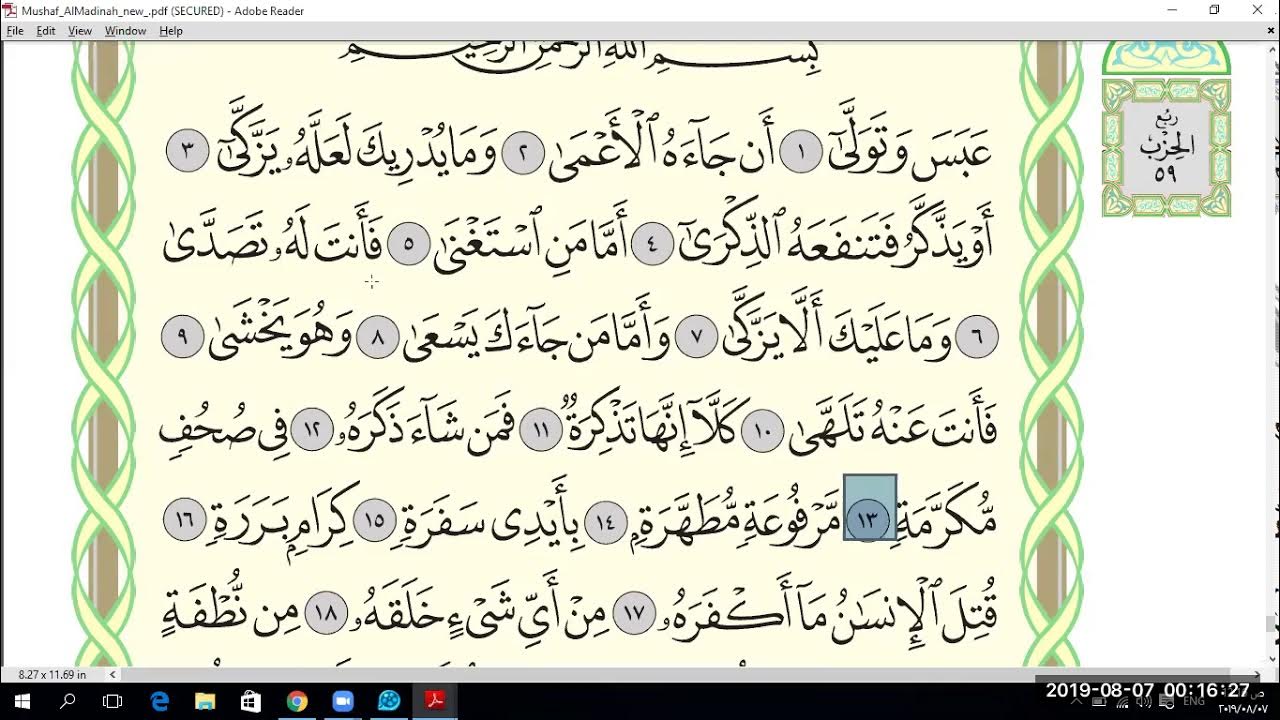 Mushaf_AlMadinah_new_.pdf (SECURED) - Adobe Reader
File Edit View Window Help
بِسْمِ اللَّهِ الرَّحْمَٰنِ الرَّحِيمِ
عَبَسَ وَتَوَلَّىٰٓ ١ أَن جَآءَهُ ٱلْأَعْمَىٰ ٢ وَمَا يُدْرِيكَ لَعَلَّهُۥ يَزَّكَّىٰٓ ٣
أَوْ يَذَّكَّرُ فَتَنفَعَهُ ٱلذِّكْرَىٰٓ ٤ أَمَّا مَنِ ٱسْتَغْنَىٰ ٥ فَأَنتَ لَهُۥ تَصَدَّىٰ
٦ وَمَا عَلَيْكَ أَلَّا يَزَّكَّىٰ ٧ وَأَمَّا مَن جَآءَكَ يَسْعَىٰ ٨ وَهُوَ يَخْشَىٰ ٩
فَأَنتَ عَنْهُ تَلَهَّىٰ ١٠ كَلَّآ إِنَّهَا تَذْكِرَةٌ ١١ فَمَن شَآءَ ذَكَرَهُۥ ١٢ فِى صُحُفٍ
مُّكَرَّمَةٍ ١٣ مَّرْفُوعَةٍ مُّطَهَّرَةٍۭ ١٤ بِأَيْدِى سَفَرَةٍ ١٥ كِرَامٍۭ بَرَرَةٍ ١٦
قُتِلَ ٱلْإِنسَٰنُ مَآ أَكْفَرَهُۥ ١٧ مِنْ أَىِّ شَىْءٍ خَلَقَهُۥ ١٨ مِن نُّطْفَةٍ
رُبْع
الحِزْبِ
٥٩
8.27 x 11.69 in
ENG
2019-08-07 00:16:27
٢٠١٩/٠٨/٠٧